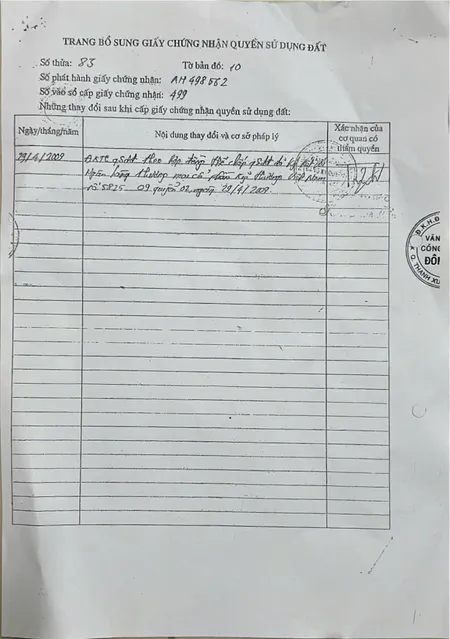 TRANG BỔ SUNG GIẤY CHỨNG NHẬN QUYỀN SỬ DỤNG ĐẤT
Số thửa: 83 Tờ bản đồ: 10
Số phát hành giấy chứng nhận: AH 498552
Số vào sổ cấp giấy chứng nhận: 499
Những thay đổi sau khi cấp giấy chứng nhận quyền sử dụng đất:
Ngày/tháng/năm
Nội dung thay đổi và cơ sở pháp lý
Xác nhận của
cơ quan có
thẩm quyền
29/4/2009
ĐKTC qsdđ theo hợp đồng thế chấp qsdđ
Ngân hàng thương mại cổ phần kỹ thương Việt Nam
số 5825 09 quyển 02 ngày 29/4/2009.
Đ.K.H.Đ
VĂN
CÔNG
ĐÔN
Q. THANH XU